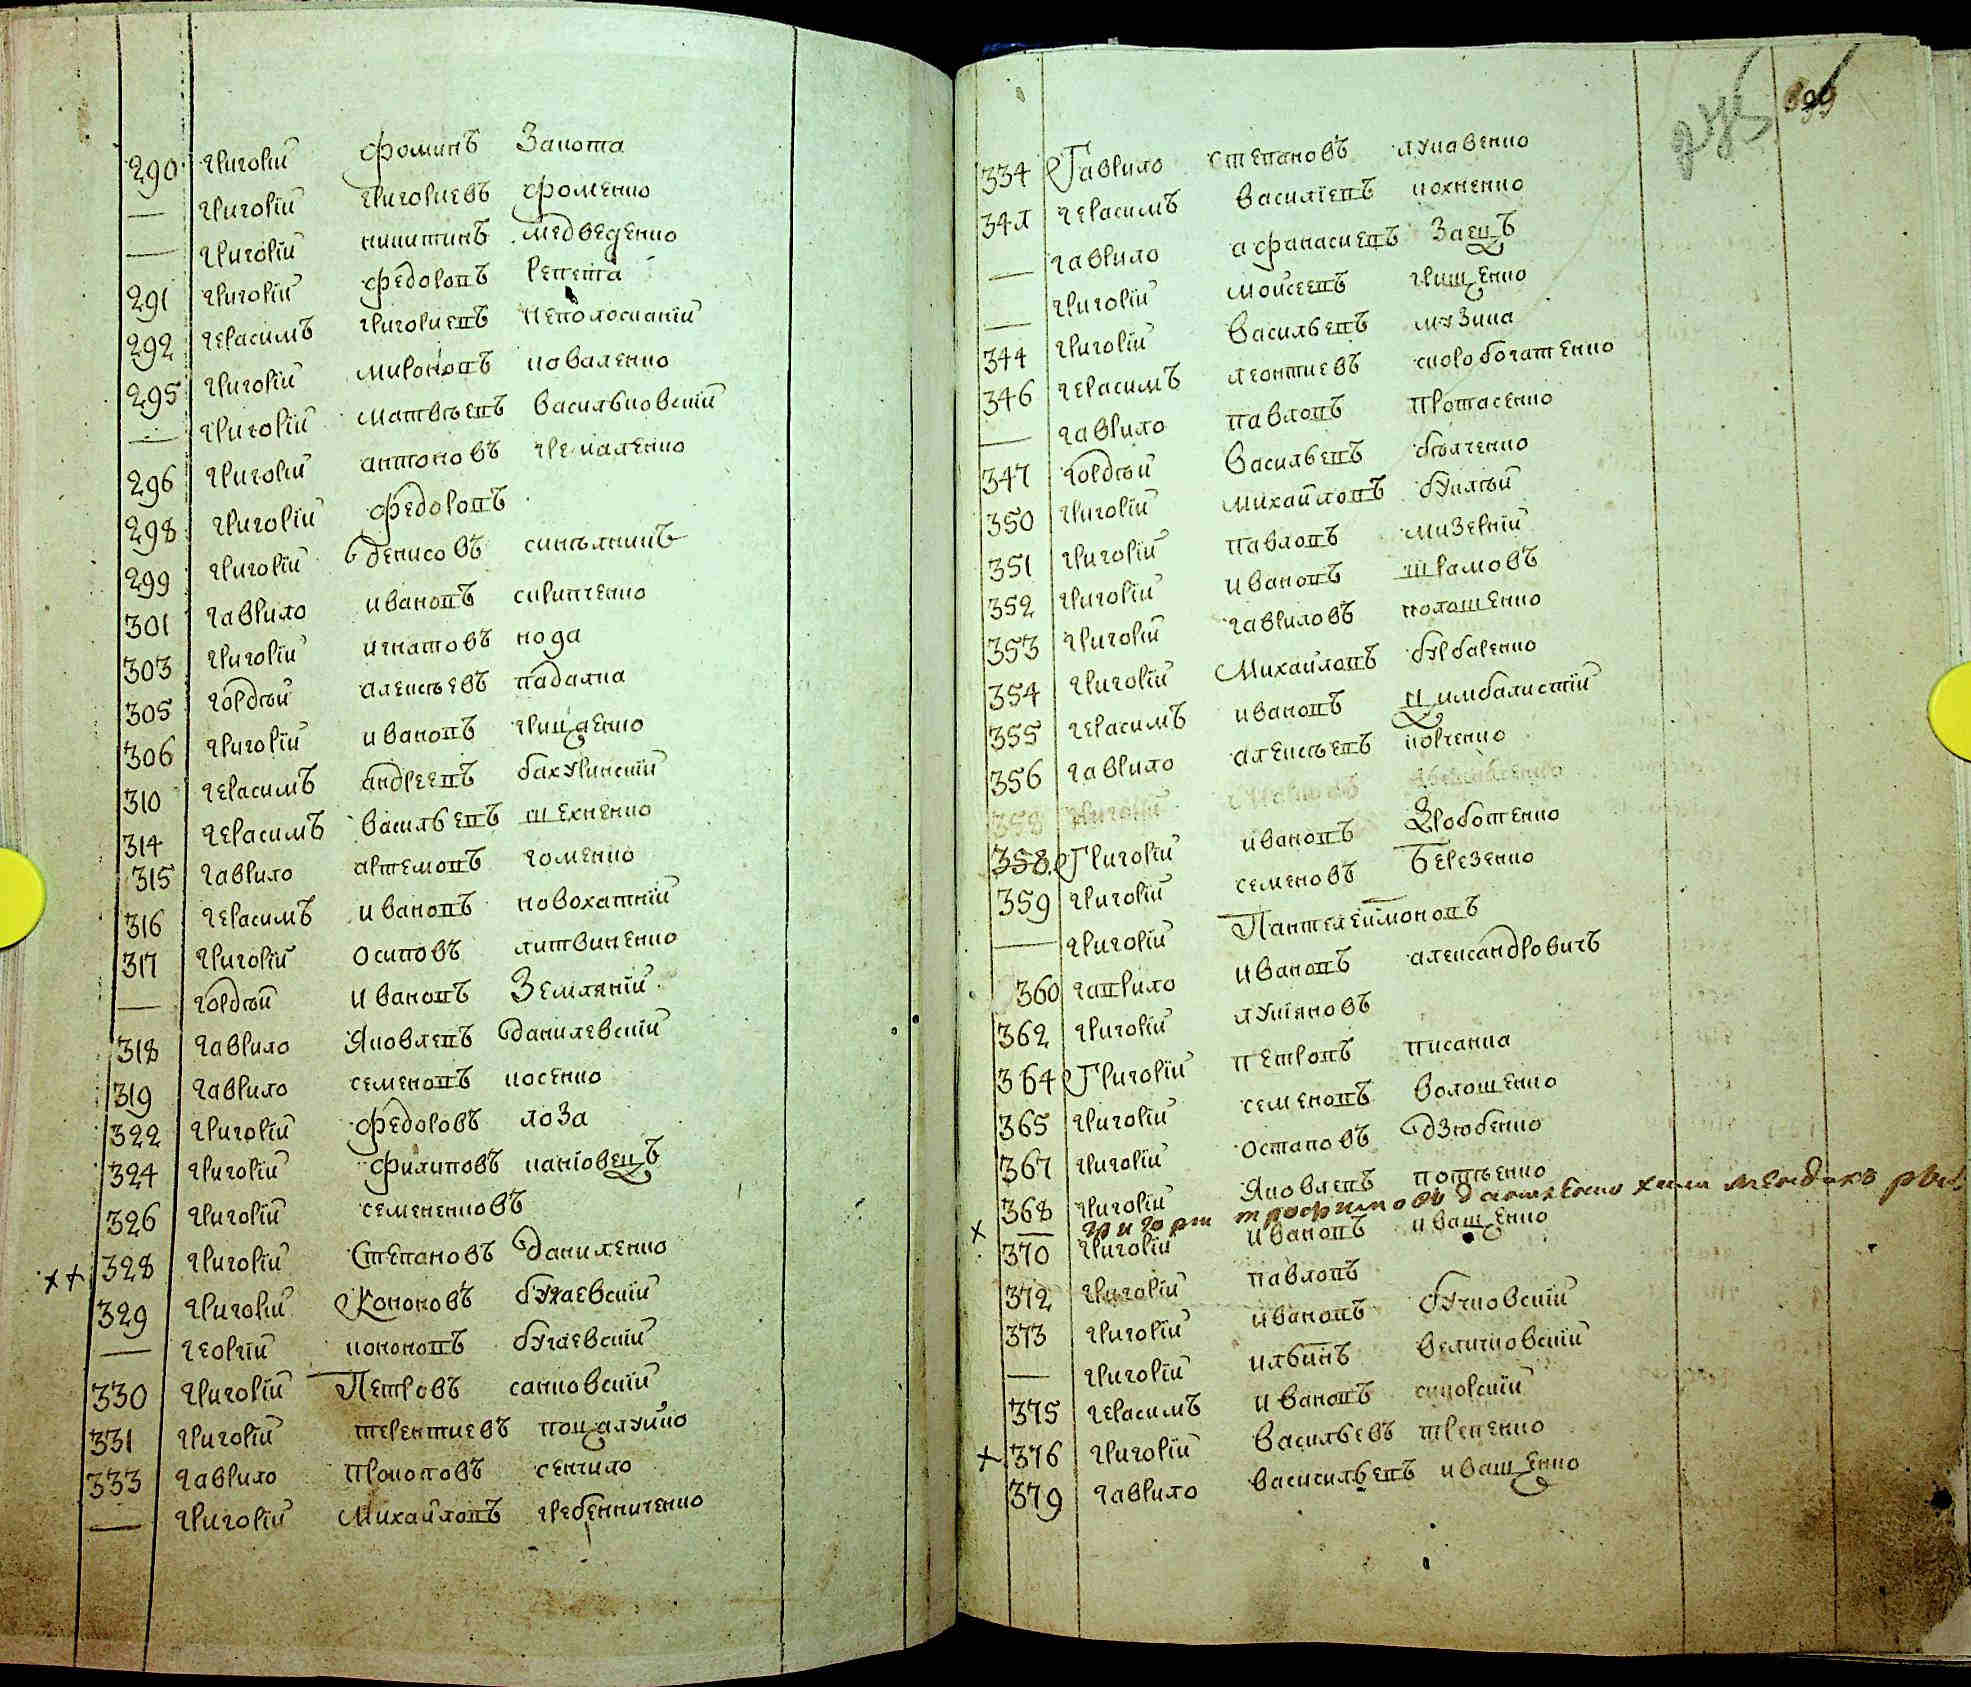 290 григорїй фоминъ Закота
— григорїй григориевъ фоменко
— григорїй никитинъ медведенко
291 григорїй федоровъ репетa
292 герасимъ григориевъ неполоснанїй
295 григорїй миромовъ коваленко
— григорїй матвѣевъ василковскїй
296 григорїй антоновъ чекаленко
298 григорїй федоровъ
299 григорїй денисовъ
301 гаврило ивановъ скрипченко
303 григорїй игнатовъ кода
305 гордѣй алексѣевъ падалка
306 григорїй ивановъ грищенко
310 герасимъ андреевъ бахуринскїй
314 герасимъ васильевъ шехненко
315 гаврило артемовъ гоменко
316 герасимъ ивановъ новохатнїй
317 григорїй осиповъ литвиненко
— гордѣй ивановъ Землянїй
318 гаврило Яковлевъ данилевскїй
319 гаврило семеновъ косенко
322 григорїй федоровъ лоза
324 григорїй филиповъ канѣовецъ
326 григорїй семененковъ
328 григорїй Степановъ даниленко
329 григорїй Кононовъ бугаевскїй
— георгїй кононовъ бугаевскїй
330 григорїй Петровъ санковскїй
331 григорїй терентиевъ поцалуйко
333 гаврило прокоповъ сенчило
— григорїй Михайловъ гребенниченко
399
334 Гаврило степановъ лукавенко
341 герасимъ василїевъ кохненко
— гаврило афанасиевъ Заецъ
— григорїй мойсеевъ грищенко
344 григорїй васильевъ музика
346 герасимъ леонтиевъ скоробогатенко
— гаврило павловъ протасенко
347 гордѣй васильевъ бѣлченко
350 григорїй михайловъ буилѣй
351 григорїй павловъ мизернїй
352 григорїй ивановъ шрамовъ
353 григорїй гавриловъ полошенко
354 григорїй Михайловъ бурбаренко
355 герасимъ ивановъ Цимбалистїй
356 гаврило алексѣевъ корченко
358 григорїй
358. Григорїй ивановъ Зроботенко
359 григорїй семеновъ Березенко
— григорїй Пантелеймоновъ
360 гаврило ивановъ александровичъ
362 григорїй лукїяновъ
364 Григорїй петровъ писанка
365 григорїй семеновъ волошенко
367 григорїй остаповъ дзюбенко
368 григорїй Яковлевъ потѣенко
— григори трофимовъ
370 григорїй ивановъ иващенко
372 григорїй павловъ
373 григорїй ивановъ бучковскїй
— григорїй ильинъ величковскїй
375 герасимъ ивановъ сикорскїй
376 григорїй Васильевъ трепенко
379 гаврило васисильевъ иващенко